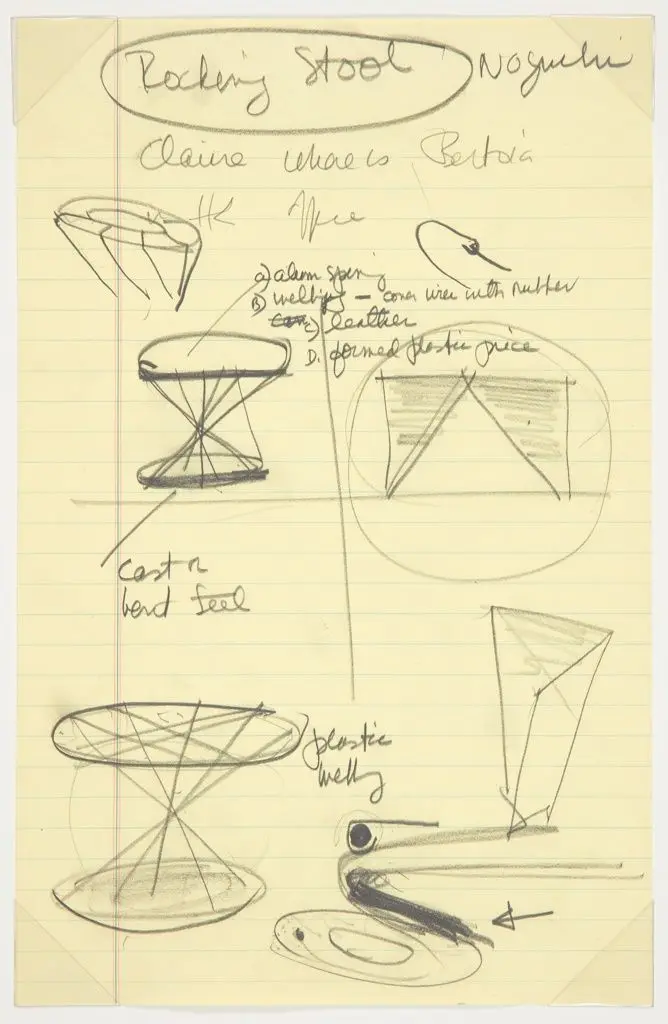 Rocking Stool Noguchi
Claire where is Bertoia
a) alum spring
B) webbing — cover wire with rubber
c) leather
D. formed plastic piece
cast or
bend steel
plastic
webbg